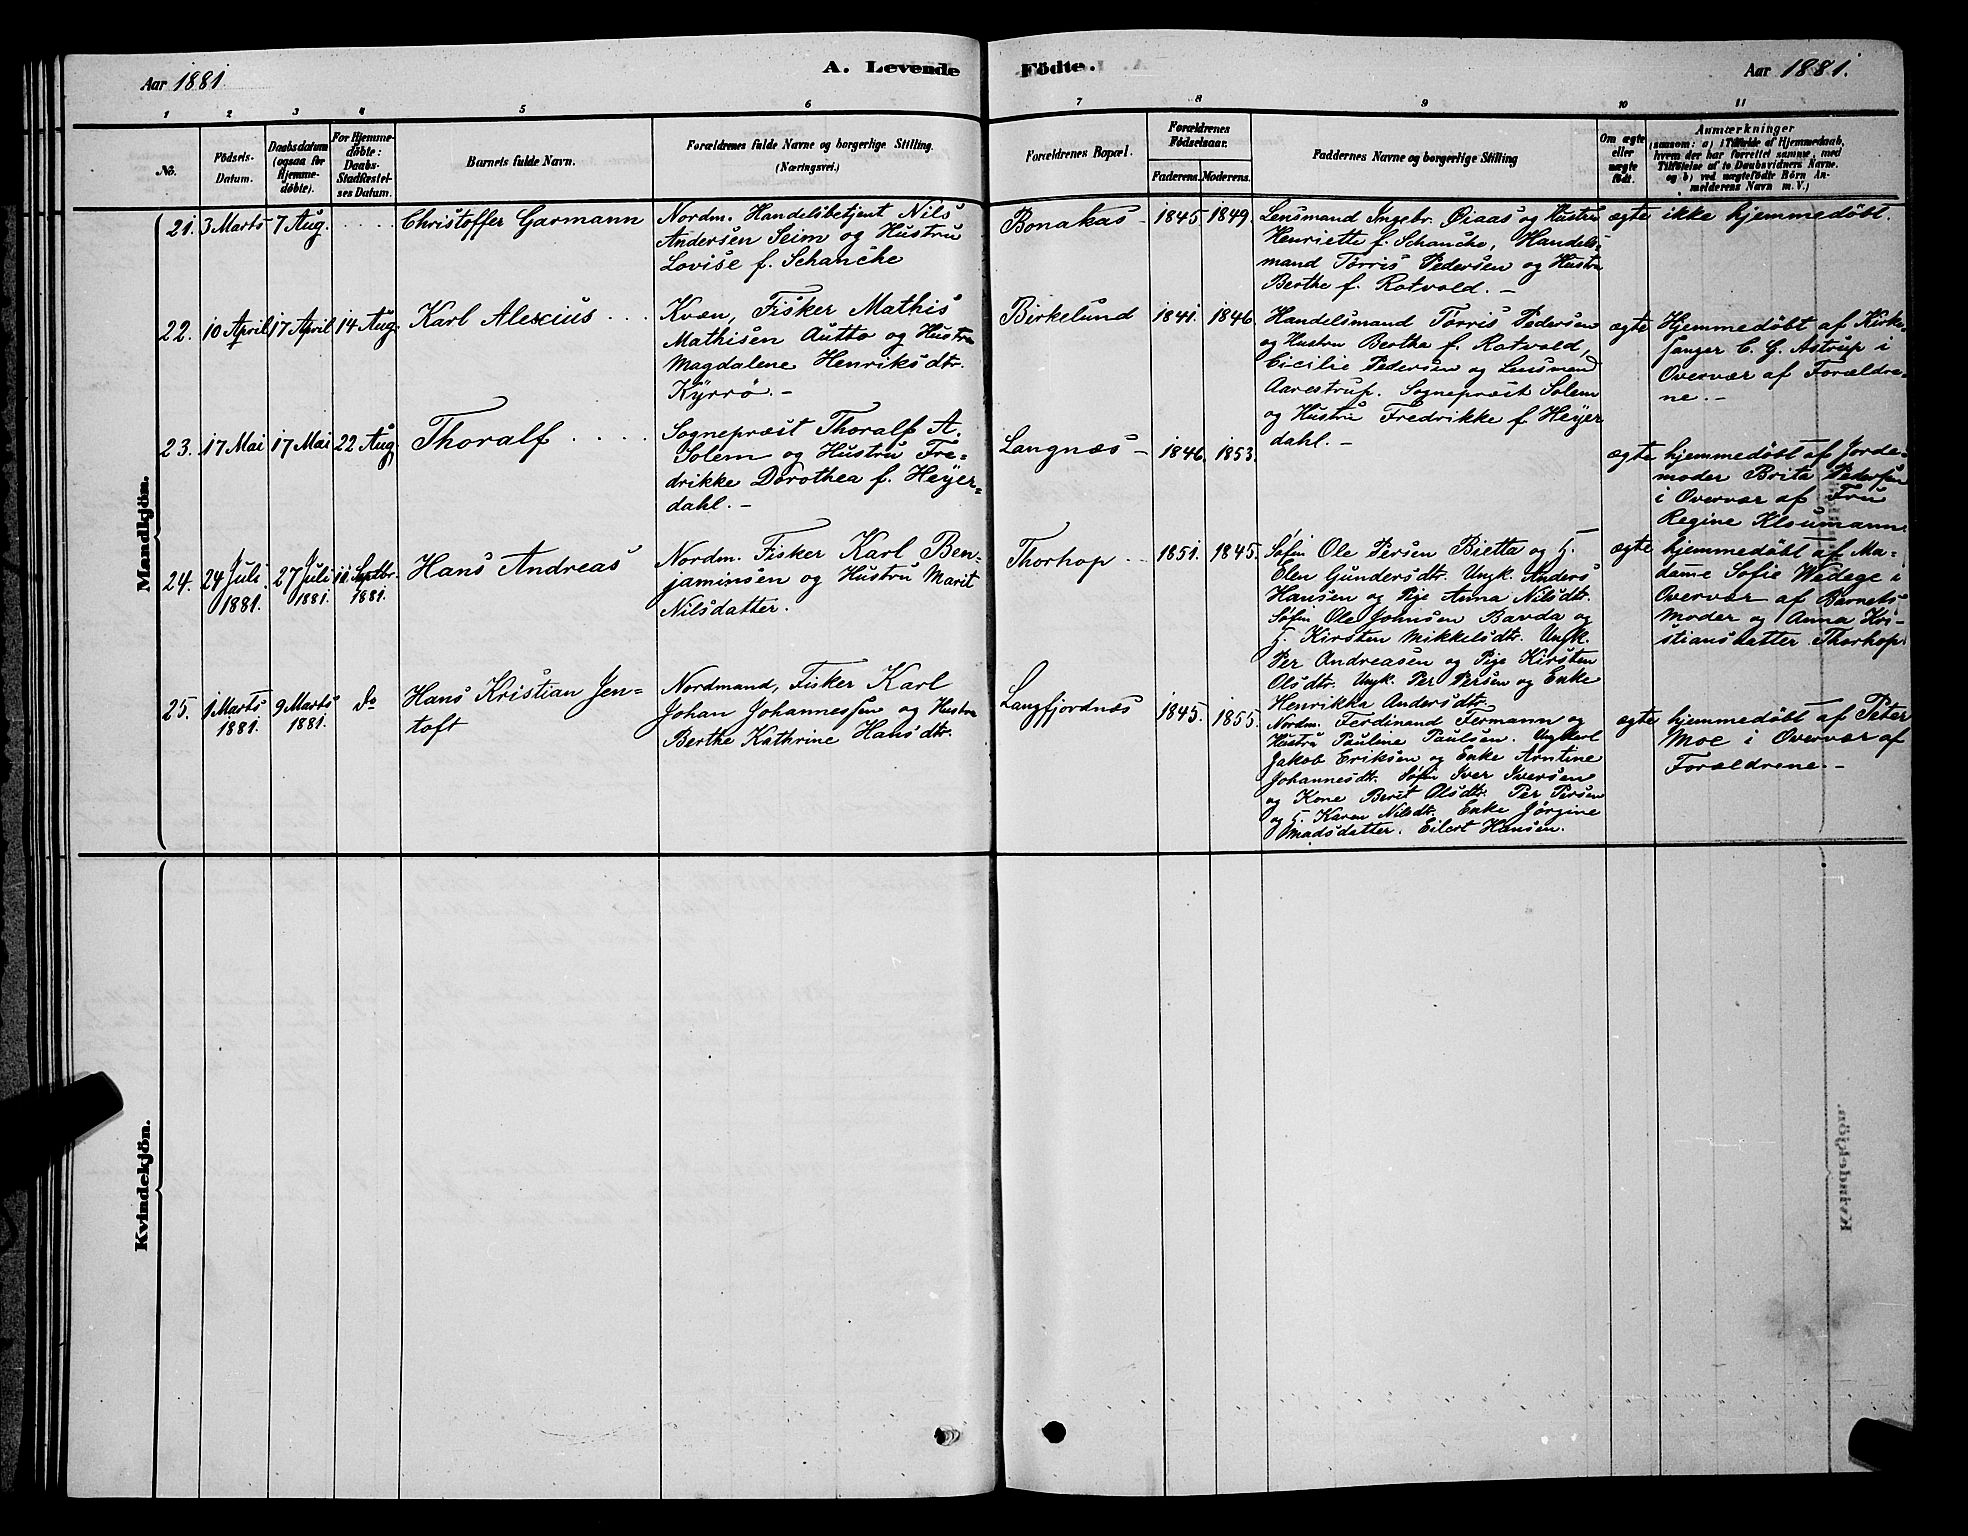 Aar 1881.
A. Levende
Födte.
Aar 1881.
1 2 3 4 5 6 7 8 9 10 11
No.
Födsels-
Datum.
Daabsdatum
(ogsaa for
Hjemme-
döbte).
For Hjemme-
döbte:
Daabs-
Stadfæstel-
ses Datum.
Barnets fulde Navn.
Forældrenes fulde Navne og borgerlige Stilling.
(Næringsvei.)
Forældrenes Bopæl.
Forældrenes
Födselsaar.
Faderens. Moderens.
Faddernes Navne og borgerlige Stilling
Om ægte
eller
uægte
födt.
Anmærkninger
(saasom: a) i Tilfælde af Hjemmedaab,
hvem der har forrettet samme, med
Tilföielse af to Daabsvidners Navne.
og b) ved uægtefödte Börn An-
melderens Navn m. V.)
Mandkjön.
21. 3 Marts 7 Aug. Christoffer Garmann
Nordm. Handelsbetjent Nils
Andersen Seim og Hustru
Lovise f. Schanche
Bonakas 1845 1849.
Lensmand Ingebr. Øiaas og Hustru
Henriette f. Schanche, Handels-
mand Törris Pedersen og Hustru
Berthe f. Rotvold. –
ægte ikke hjemmedøbt.
22. 10 April 17 April 14 Aug. Karl Alexius
Kvæn, Fisker Mathis
Mathisen Autto og Hustru
Magdalene Henriksdtr.
Kyrrø. –
Birkelund 1841. 1846.
Handelsmand Törris Pedersen
og Hustru Berthe f. Rotvold,
Cicilie Pedersen og Lensmand
Aarestrup. Sogneprest Solem
og Hustru Fredrikke f. Heyer
dahl. –
ægte Hjemmedøbt af Kirke-
sanger C. G. Astrup i
Overvær af Forældre-
ne. –
23. 17 Mai 17 Mai 22 Aug Thoralf
Sogneprest Thoralf A.
Solem og Hustru Fre-
drikke Dorothea f. Heyer-
dahl. –
Langnæs 1846. 1853.
ægte hjemmedøbt af Jorde-
moder Brita Pedersen
i Overvær af Fru
Regine Klaumann
24. 24 Juli 1881. 27 Juli 1881. 11 Septbr. 1881. Hans Andreas
Nordm. Fisker Karl Ben-
jaminsen og Hustru Marit
Nilsdatter.
Thorhop 1851. 1845.
Søfin Ole Persen Bietta og H.
Elen Gundersdtr. Ungk. Anders
Hansen og Pige Anna Nilsdtr.
Søfin Ole Johnsen Bavda og
H. Kirsten Mikkelsdtr. Ungk.
Per Andreasen og Pige Kirsten
Olsdtr. Ungk. Per Persen og Enke
Henrikka Andersdtr.
ægte hjemmedøbt af Ma-
dame Sofie Wedege i
Overvær af Barnets
Moder og Anna Kri-
stiansdatter Thorhop
25. 1 Marts 1881. 9 Marts 1881. do Hans Kristian Jen-
toft
Nordmand, Fisker Karl
Johan Johannessen og Hustru
Berthe Kathrine Hansdtr.
Langfjordnæs 1845. 1855.
Nordm. Ferdinand Fermann og
Hustru Pauline Paulsen. Ungkarl
Jakob Eriksen og Enke Arntine
Johannesdtr. Søfin Iver Iversen
og Kone Berit Olsdtr. Per Persen
og H. Karen Nilsdtr. Enke Jørgine
Madsdatter. Eilert Hansen.
ægte hjemmedøbt af Peter
Moe i Overvær af
Forældrene. –
Kvindekjön.